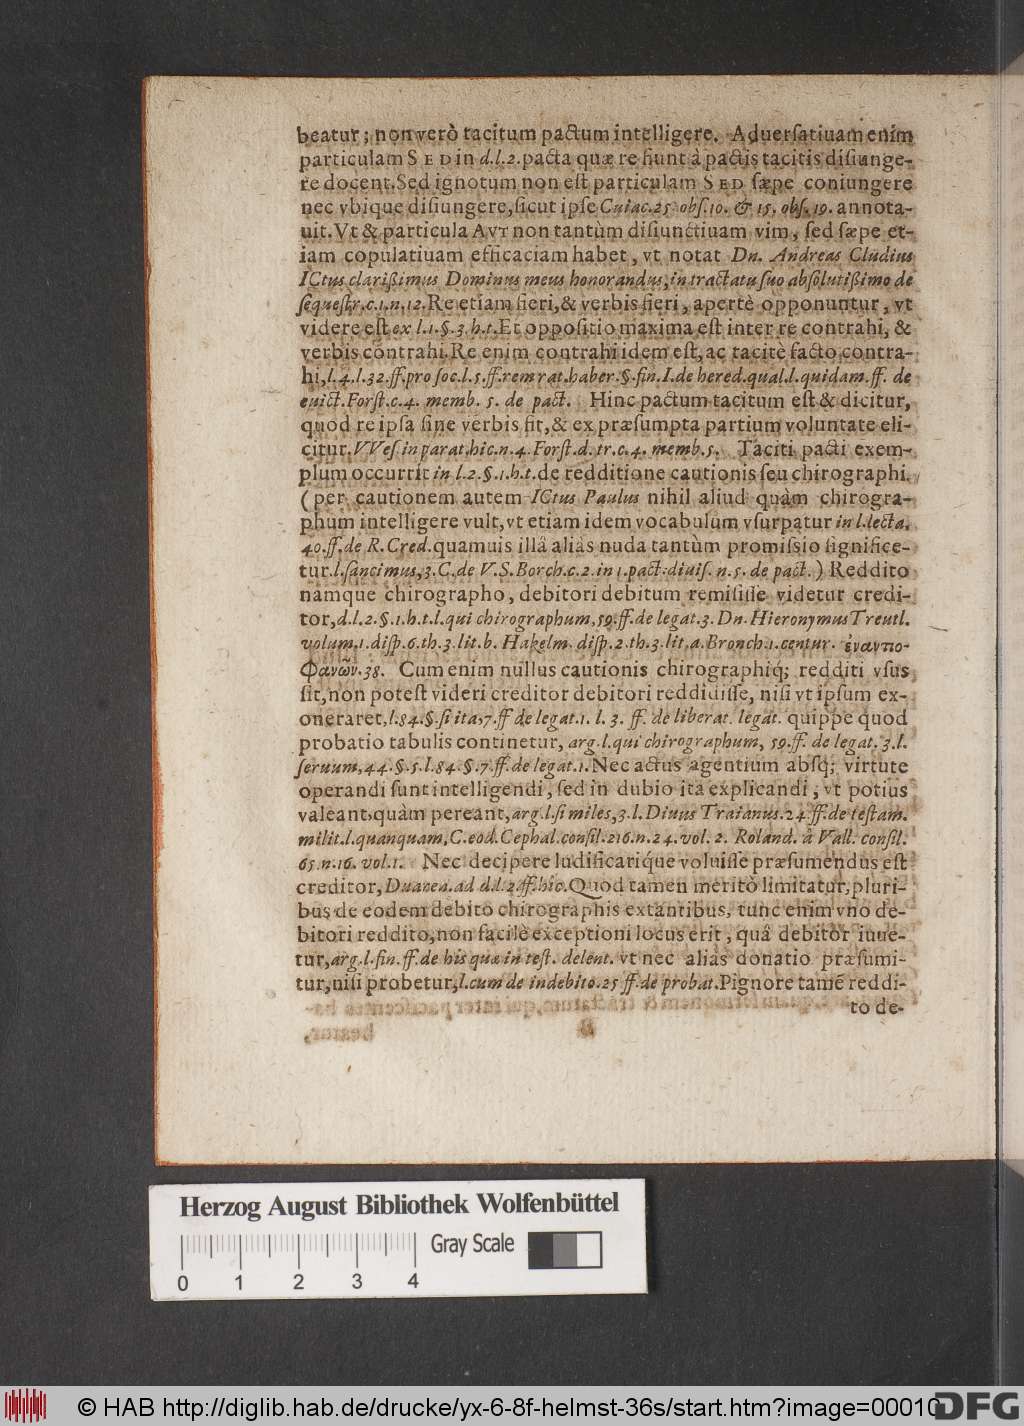 beatur; non verò tacitum pactum intelligere. Aduerſatiuam enim
particulam SED in d.l.2. pacta quæ re fiunt à pactis tacitis diſiunge-
re docent. Sed ignotum non eſt particulam SED ſæpe coniungere
nec vbique diſiungere, ſicut ipſe Cuiac. 25. obſ. 10. & 15. obſ. 19. annota-
uit. Vt & particula AVT non tantùm diſiunctiuam vim, ſed ſæpe et-
iam copulatiuam efficaciam habet, vt notat Dn. Andreas Cludius
ICtus clarißimus Dominus meus honorandus, in tractatu ſuo abſolutißimo de
ſequeſtr. c. 1. n. 12. Re etiam fieri, & verbis fieri, apertè opponuntur, vt
videre eſt ex l. 1. §. 3. h. t. Et oppoſitio maxima eſt inter re contrahi, &
verbis contrahi. Re enim contrahi idem eſt, ac tacitè facto contra-
hi, l. 4. l. 32. ff. pro ſoc. l. 5. ff. rem rat. haber. §. fin. I. de hered. qual. l. quidam. ff. de
euict. Forſt. c. 4. memb. 5. de pact. Hinc pactum tacitum eſt & dicitur,
quod re ipſa ſine verbis fit, & ex præſumpta partium voluntate eli-
citur. VVeſ. in parat. hic. n. 4. Forſt. d. tr. c. 4. memb. 5. Taciti pacti exem-
plum occurrit in l. 2. §. 1. h. t. de redditione cautionis ſeu chirographi.
(per cautionem autem ICtus Paulus nihil aliud quàm chirogra-
phum intelligere vult, vt etiam idem vocabulum vſurpatur in l. lecta.
40. ff. de R. Cred. quamuis illâ aliàs nuda tantùm promiſsio ſignifice-
tur. l. ſancimus, 3. C. de V. S. Borch. c. 2. in 1. pact. diuiſ. n. 5. de pact.) Reddito
namque chirographo, debitori debitum remiſiſſe videtur credi-
tor, d. l. 2. §. 1. h. t. l. qui chirographum, 59. ff. de legat. 3. Dn. Hieronymus Treutl.
volum. 1. diſp. 6. th. 3. lit. b. Hakelm. diſp. 2. th. 3. lit. a. Bronch. 1. centur. ἐναντιο-
φανῶν. 38. Cum enim nullus cautionis chirographiq́; redditi vſus
ſit, non poteſt videri creditor debitori reddidiſſe, niſi vt ipſum ex-
oneraret, l. 84. §. ſi ita, 7. ff de legat. 1. l. 3. ff. de liberat. legat. quippe quod
probatio tabulis continetur, arg. l. qui chirographum, 59. ff. de legat. 3. l.
ſeruum, 44. §. 5. l. 84. §. 7. ff. de legat. 1. Nec actus agentium abſq́; virtute
operandi ſunt intelligendi, ſed in dubio ita explicandi, vt potius
valeant, quàm pereant, arg. l. ſi miles, 3. l. Diuus Traianus. 24. ff. de teſtam.
milit. l. quanquam, C. eod. Cephal. conſil. 216. n. 24. vol. 2. Roland. à Vall. conſil.
65. n. 16. vol. 1. Nec decipere ludificariq́ue voluiſſe præſumendus eſt
creditor, Duaren. ad d. l. 2. ff. hic. Quod tamen meritò limitatur, pluri-
bus de eodem debito chirographis extantibus, tunc enim vno de-
bitori reddito, non facilè exceptioni locus erit, quâ debitor iuue-
tur, arg. l. fin. ff. de his quæ in teſt. delent. vt nec aliàs donatio præſumi-
tur, niſi probetur, l. cum de indebito. 25. ff. de probat. Pignore tamē reddi-
to de-
Herzog August Bibliothek Wolfenbüttel
Gray Scale
0 1 2 3 4
© HAB http://diglib.hab.de/drucke/yx-6-8f-helmst-36s/start.htm?image=00010
DFG